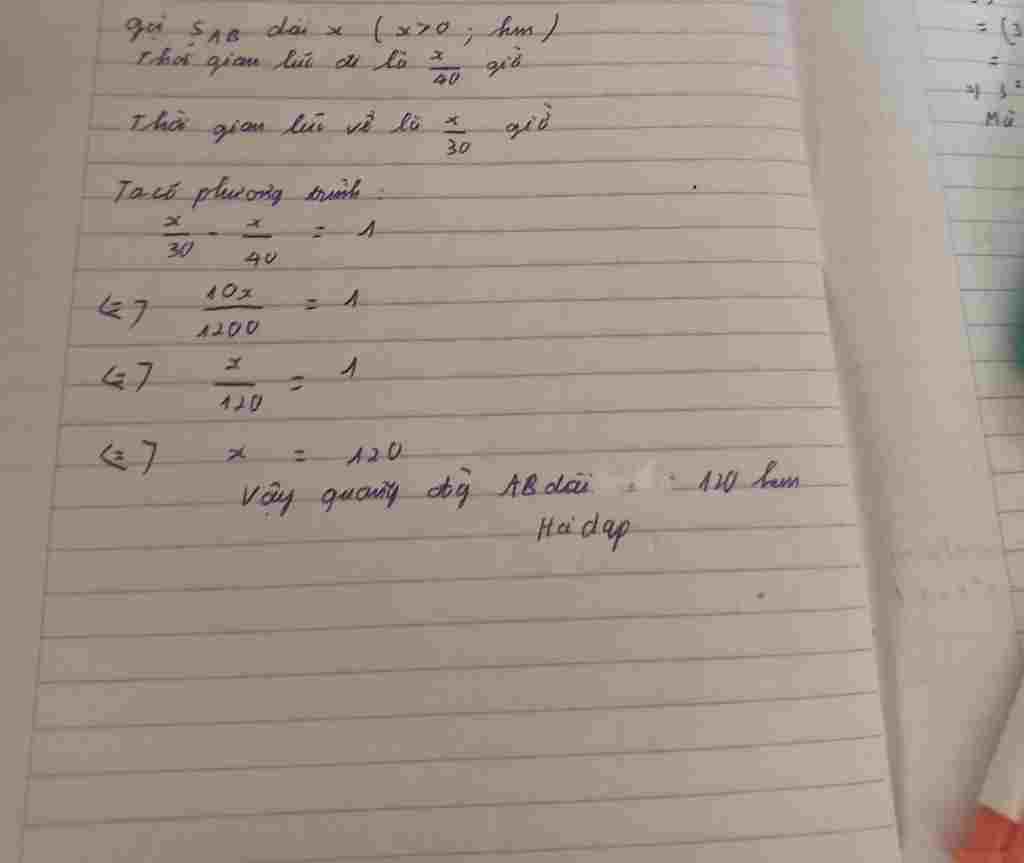 gọi S AB dài x ( x>0 ; km )
Thời gian lúc đi là x/40 giờ
Thời gian lúc về là x/30 giờ
Ta có phương trình :
x/30 - x/40 = 1
<=> 10x/1200 = 1
<=> x/120 = 1
<=> x = 120
Vậy quãng đg AB dài 120 km
Hoidap
= (3
=
=) 3
Mà